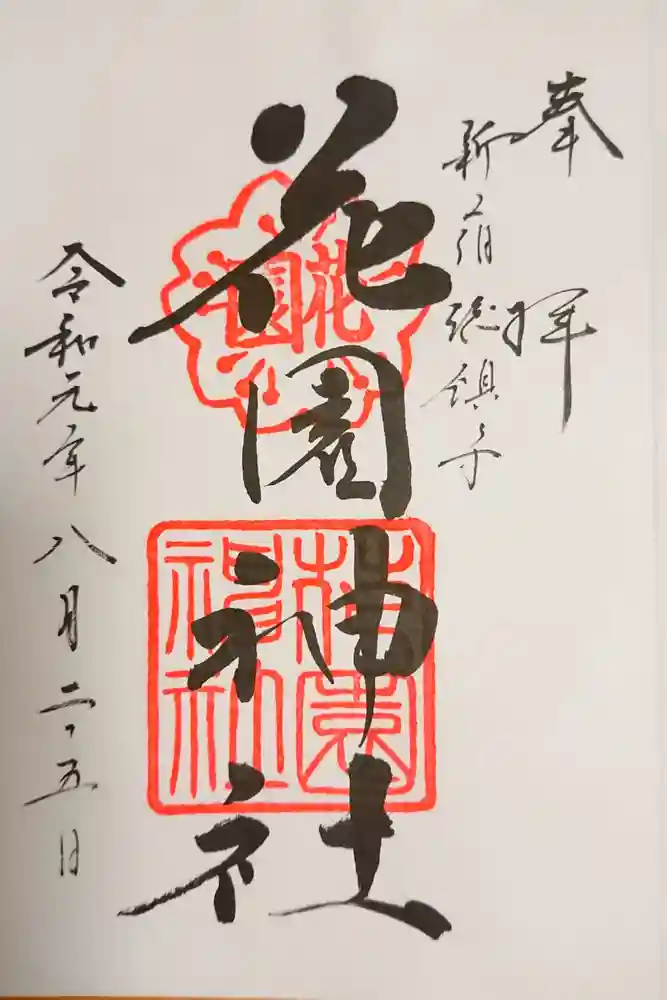 奉拝
新宿総鎮守
花園神社
花園
花園神社
令和元年八月二十五日